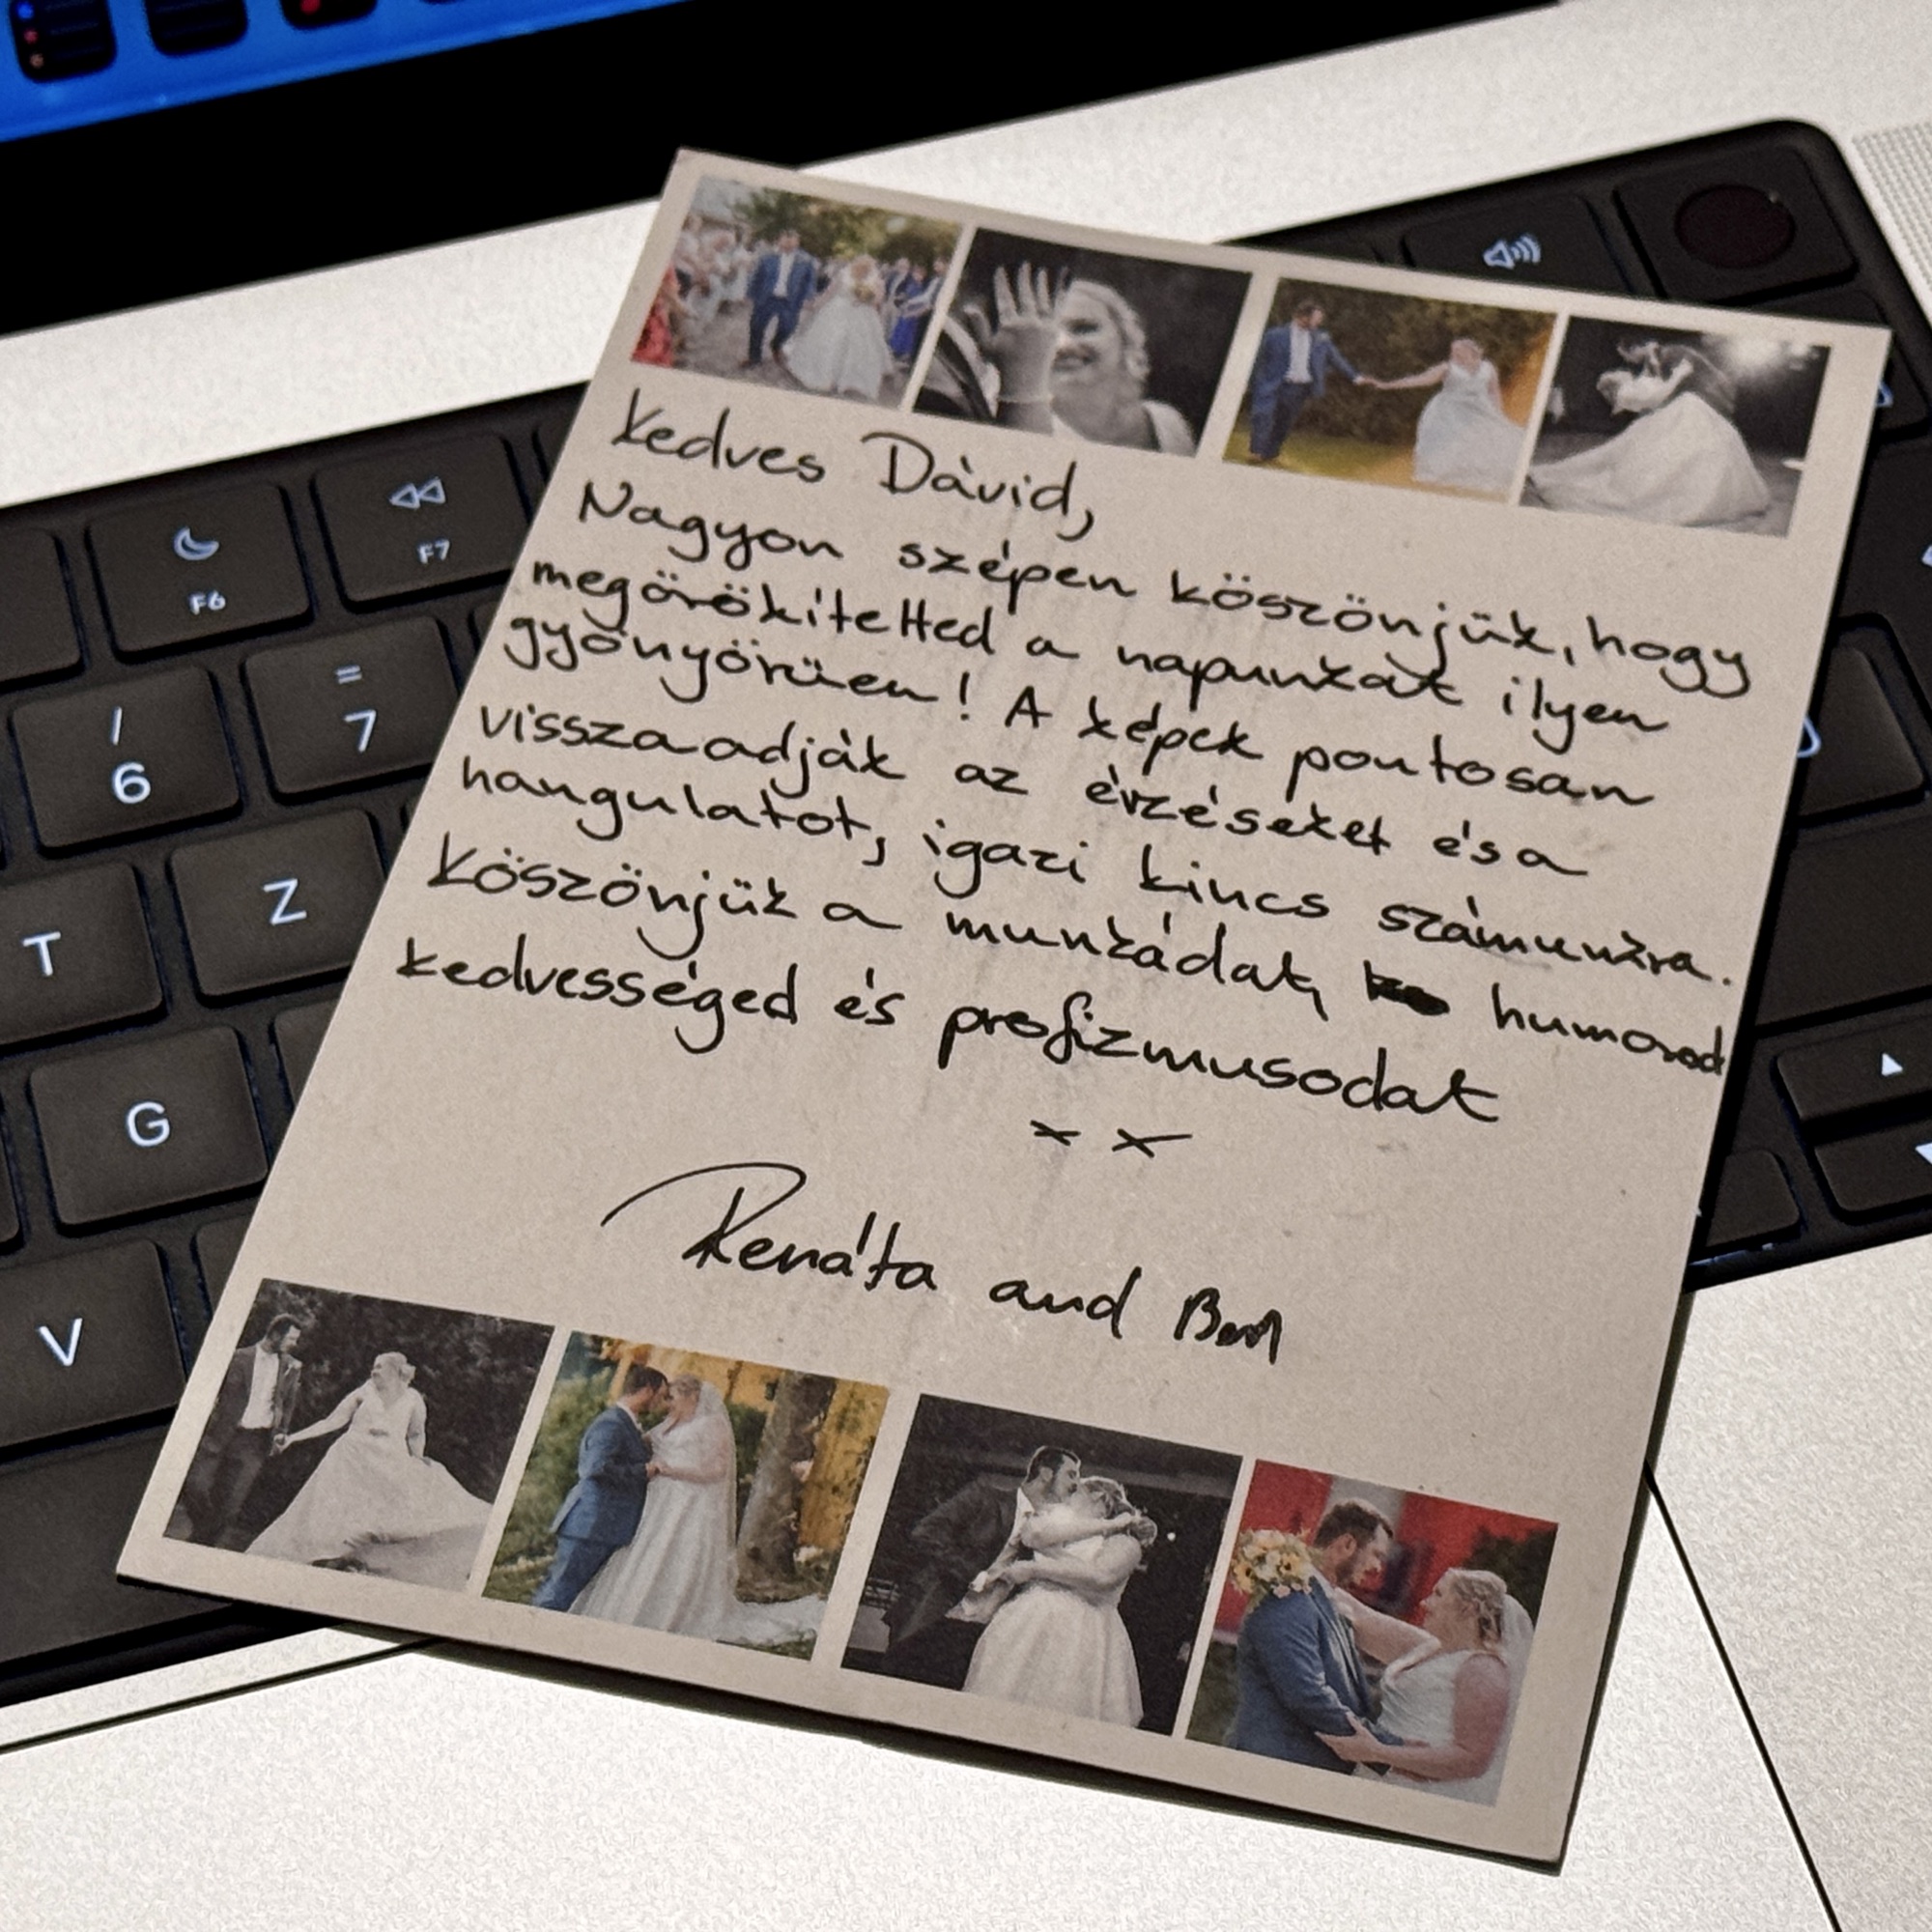 Kedves Dávid,
Nagyon szépen köszönjük, hogy
megörökítetted a napunkat ilyen
gyönyörűen! A képek pontosan
visszaadják az érzéseket és a
hangulatot, igazi kincs számunkra.
Köszönjük a munkádat, humorod
kedvességed és profizmusodat
x x
Renáta and
F6
F7
/
6
=
7
T
Z
G
V